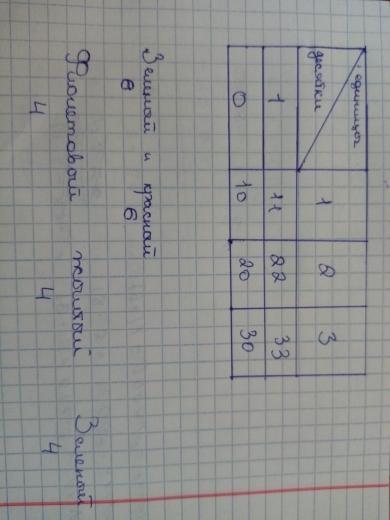 единицы
десятки 1 2 3
1 11 22 33
0 10 20 30
Зеленой и красной
6 6
Фиолетовый желтый Зеленый
4 4 4